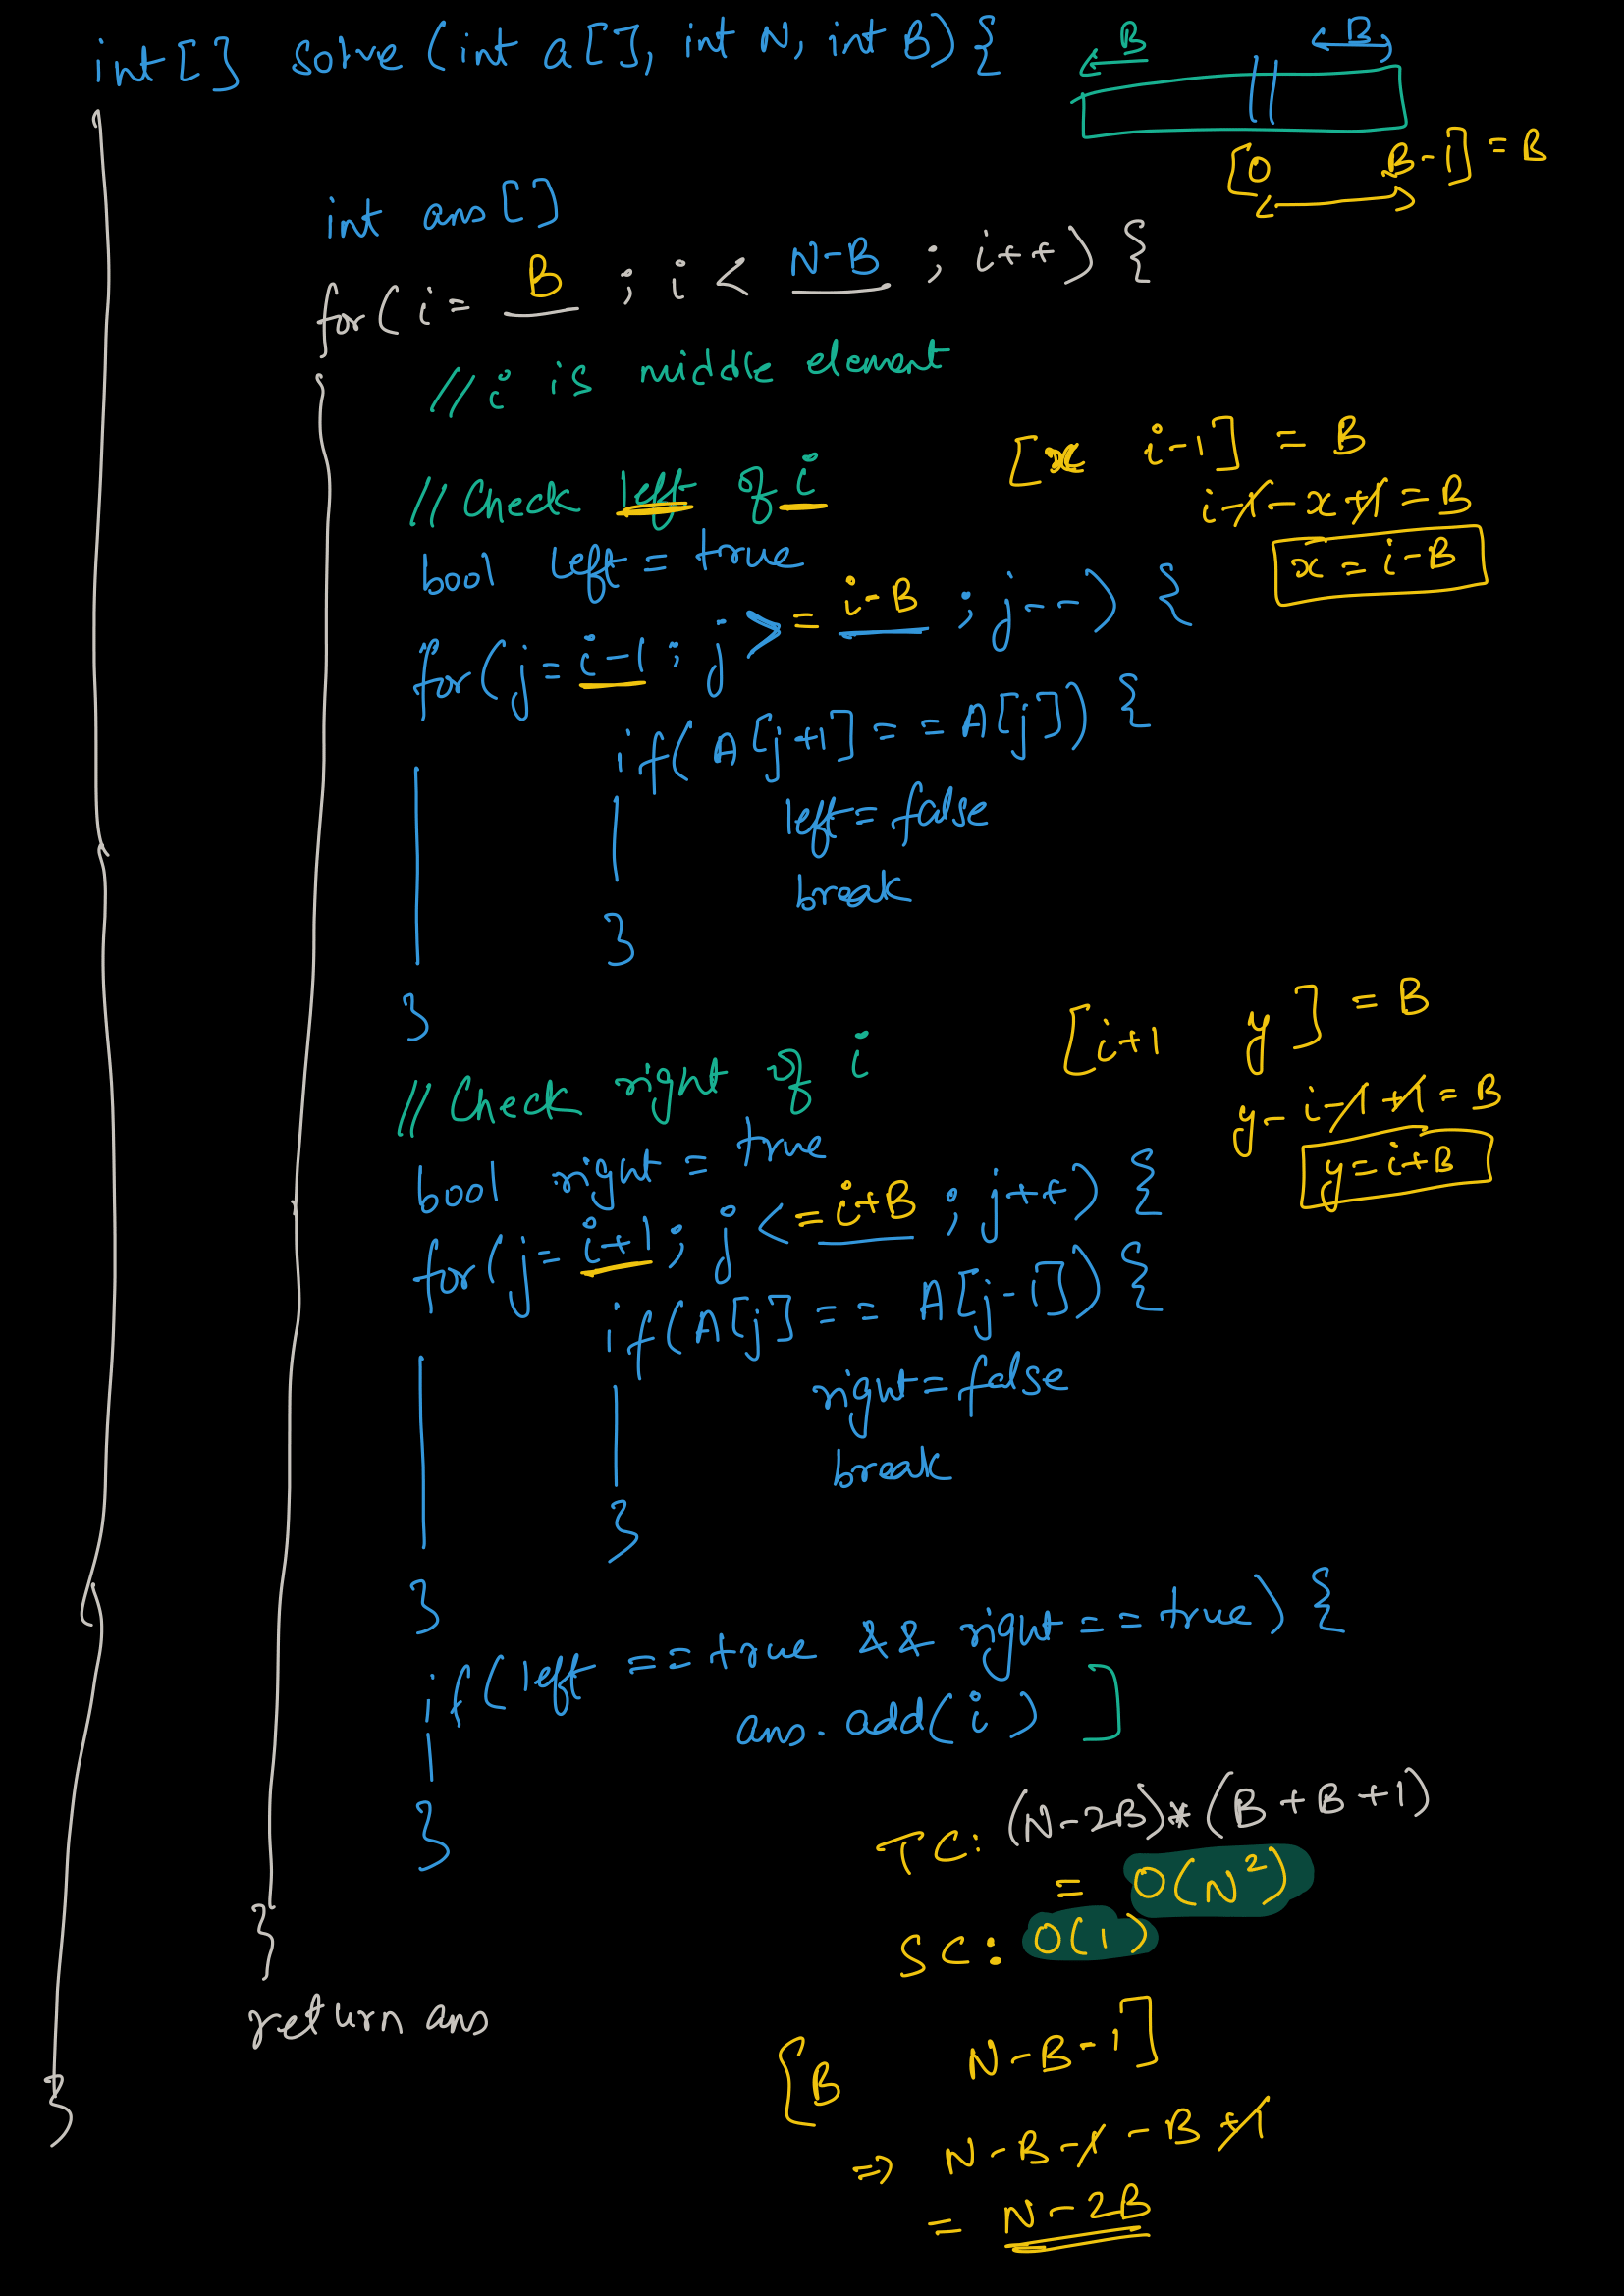 int[] solve (int a[], int N, int B){
B B
[0 B-1] = B
int ans[]
for( i = B ; i < N-B ; i++ ) {
// i is middle element
// Check left of i
[x i-1] = B
i-1-x+1 = B
x = i-B
bool left = true
for( j = i-1 ; j >= i-B ; j-- ) {
if( A[j+1] == A[j]) {
left = false
break
}
}
// Check right of i
[i+1 y] = B
y-i-1+1 = B
y = i+B
bool right = true
for( j = i+1 ; j <= i+B ; j++ ) {
if( A[j] == A[j-1]) {
right = false
break
}
}
if( left == true && right == true) {
ans. add( i ) ]
}
TC: (N-2B)*(B+B+1)
= O(N²)
SC: O(1)
}
return ans
[B N-B-1]
⇒ N-B-1-B+1
= N-2B
}